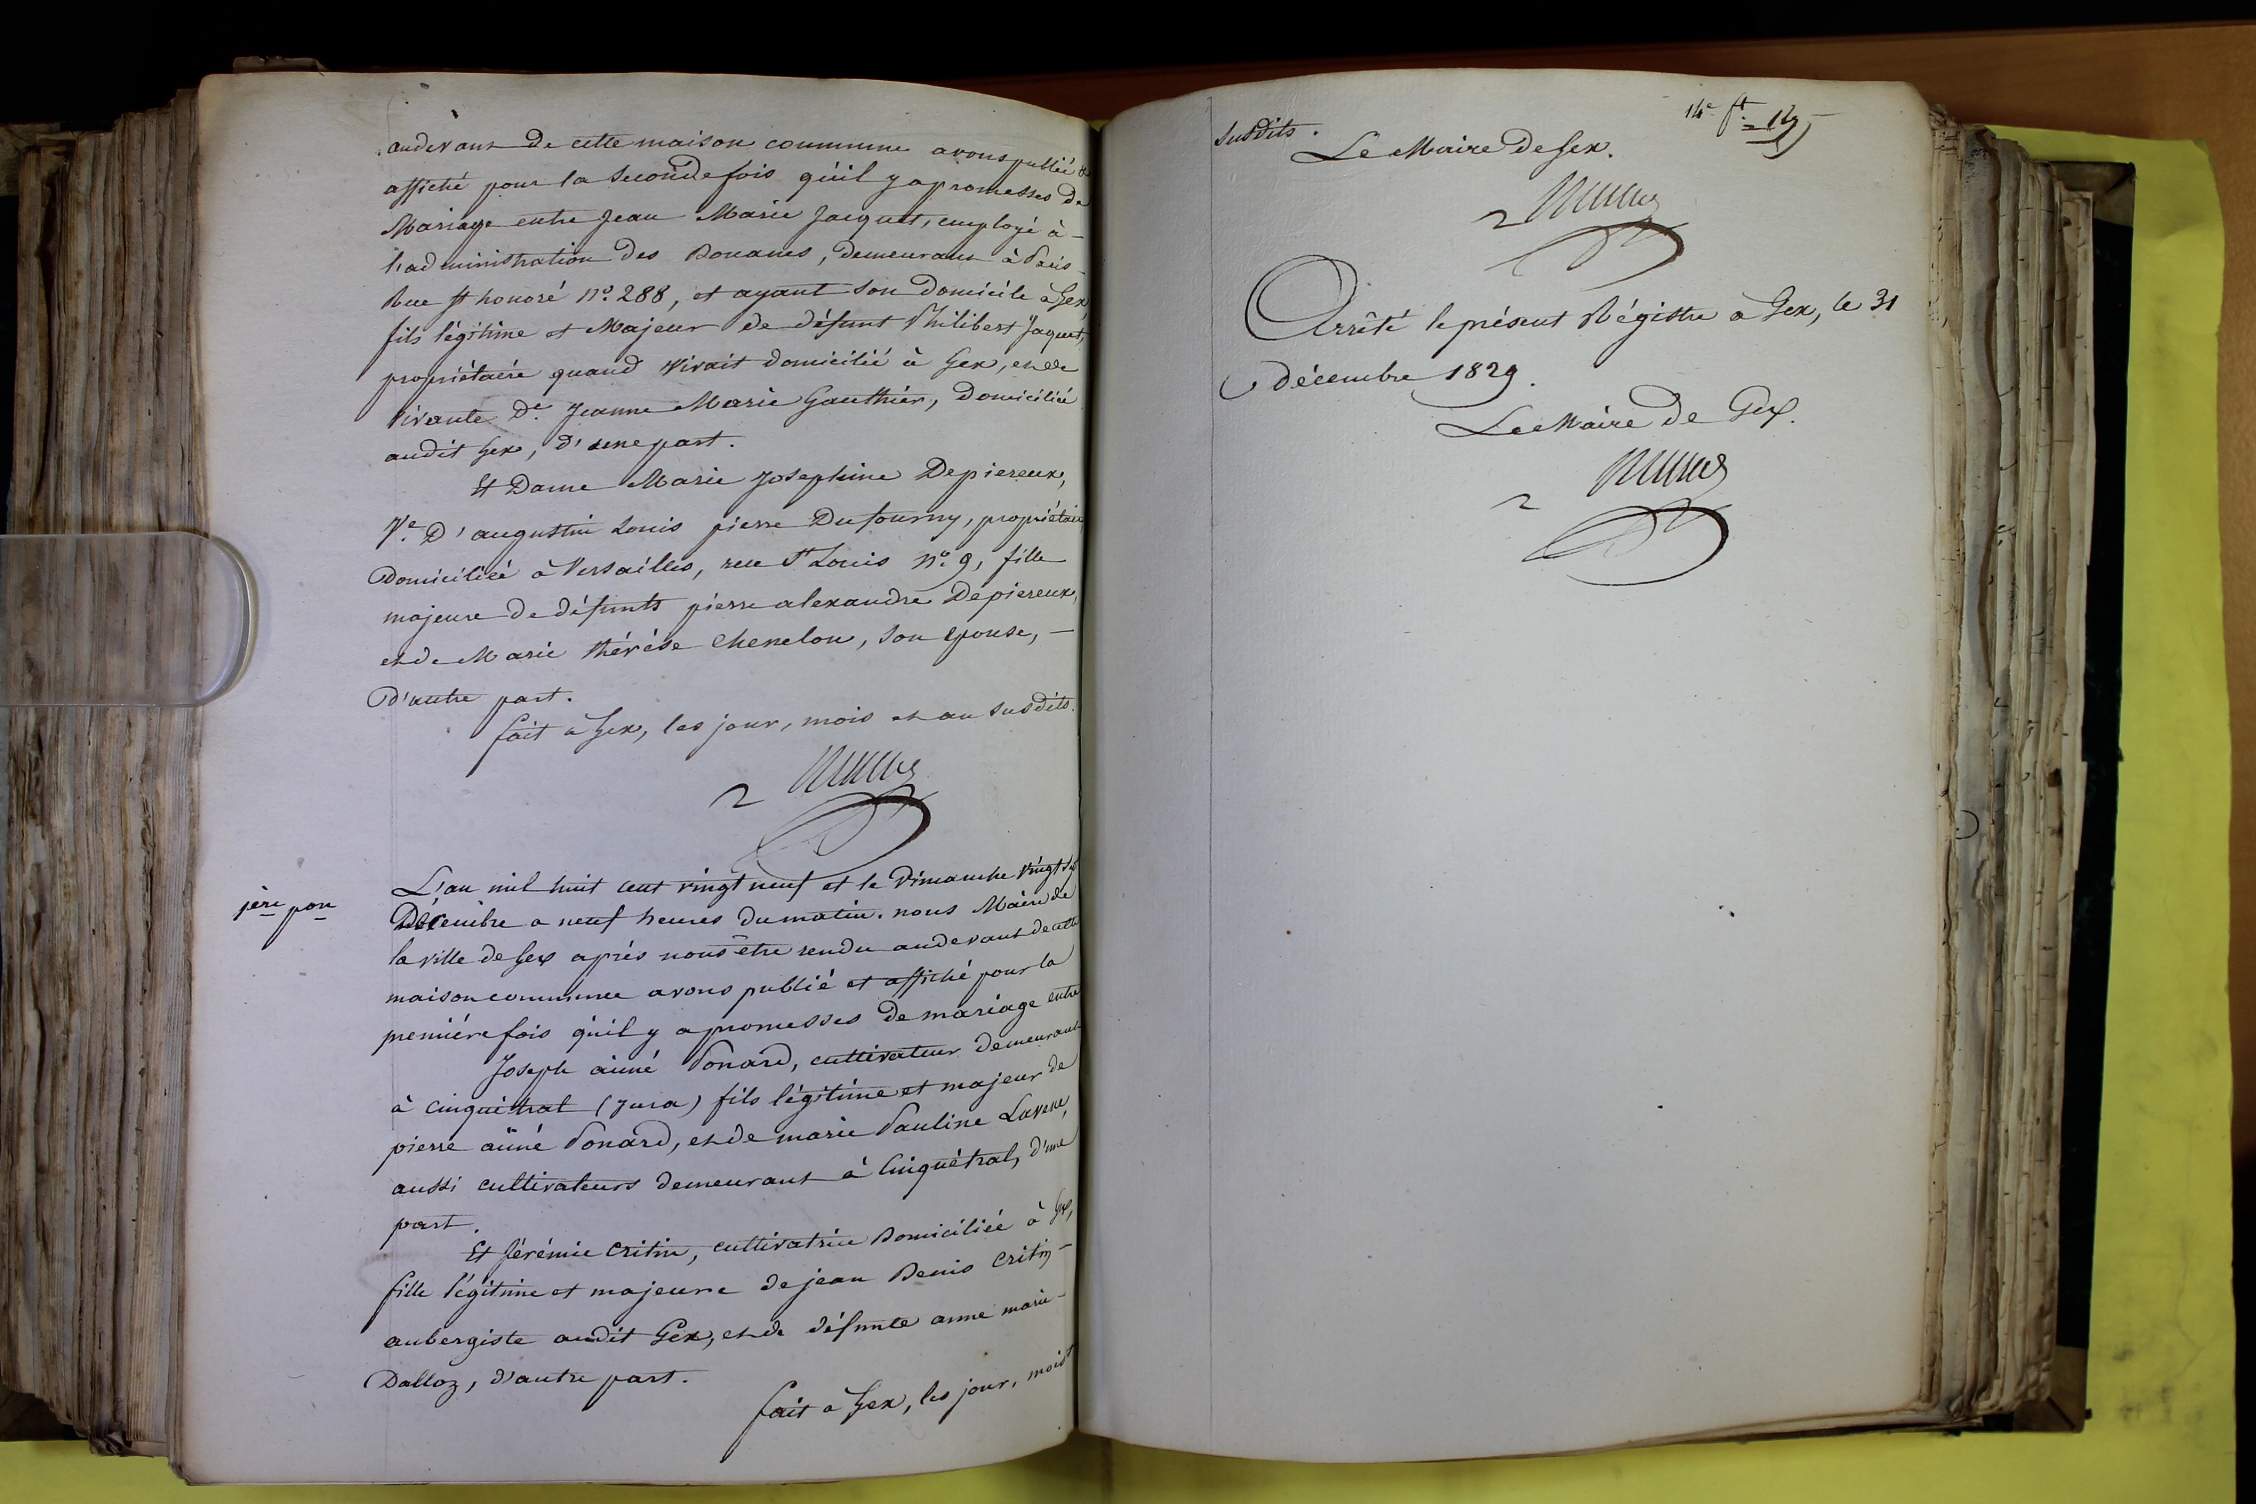 audevant de cette maison commune avons publié &
affiché pour la seconde fois qu'il y a promesses de
Mariage entre Jean Marie Jacquet, employé à -
l'administration des Douanes, demeurant à Paris -
Rue St honoré n° 288, et ayant son domicile à Gex,
fils légitime et Majeur de défunt Philibert Jaquet,
propriétaire quand vivait domicilié à Gex, et de
vivante De. Jeanne Marie Gauthier, domiciliée
audit Gex, d'une part.
Et Dame Marie Josephine Depiereux,
Ve. D'augustin Louis pierre Dufourny, propriétaire
domiciliée à Versailles, rue St Louis n° 9, fille
majeure de défunts pierre alexandre Depiereux,
et de Marie thérése Chenelon, son epouse, -
d'autre part.
fait à Gex, les jour, mois et an susdits.
L'an mil huit cent vingt neuf et le Dimanche vingt sept
1ère pon
Décembre a neuf heures du matin. nous Maire de
la ville de Gex aprés nous être rendu audevant de cette
maison commune avons publié et affiché pour la
premiére fois qu'il y a promesses de mariage entre
Joseph aimé Ponard, cultivateur demeurant
à cinquétral (jura) fils légitime et majeur de
pierre aimé Ponard, et de marie Pauline Lavene,
aussi cultivateurs demeurant à Cinquétral, d'une
part.
Et Jérémie Critin, cultivatrice domiciliée à Gex,
fille légitime et majeure de jean Denis Critin -
aubergiste audit Gex, et de défunte anne marie -
Dalloz, d'autre part.
fait à Gex, les jour, mois
14e ft.
susdits.
Le Maire de Gex.
Arrêté le présent Régistre à Gex, le 31
décembre 1829.
Le Maire de Gex.